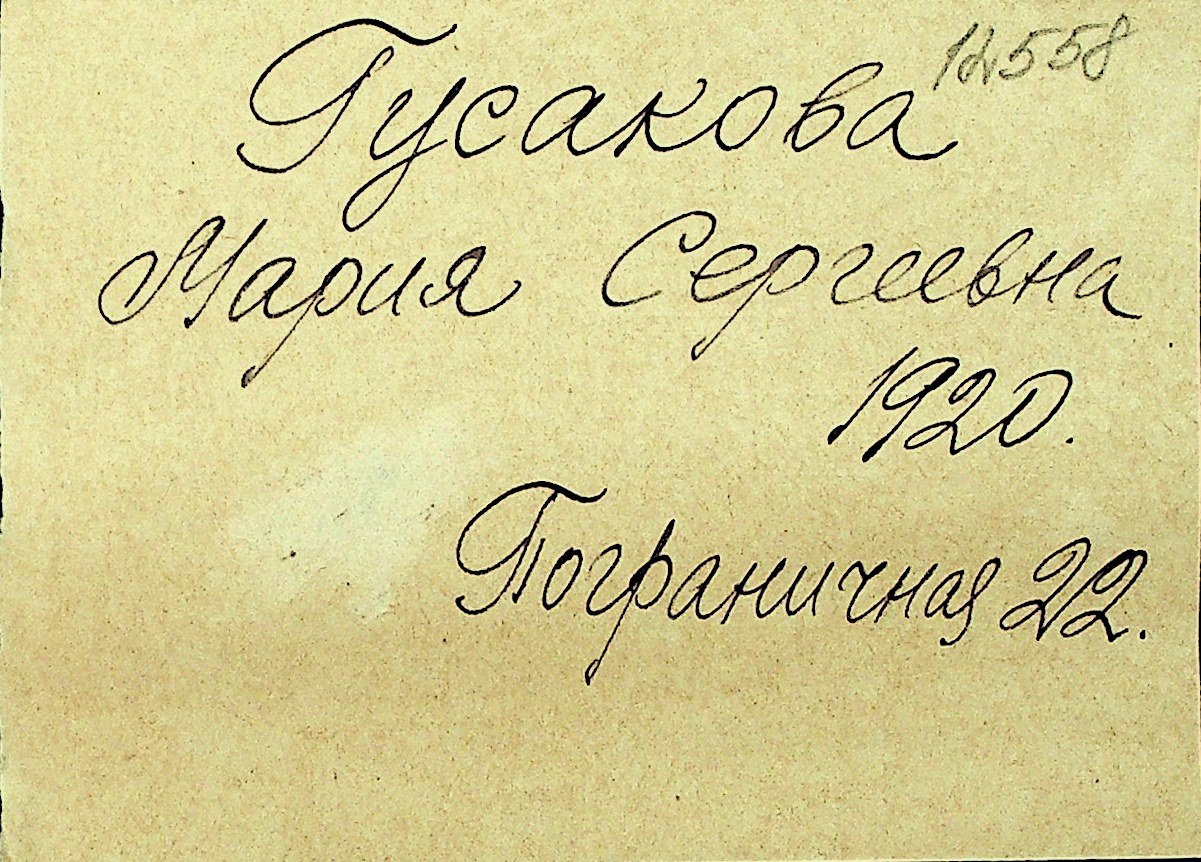 12558
Гусакова
Мария Сергеевна
1920.
Пограничная 22.